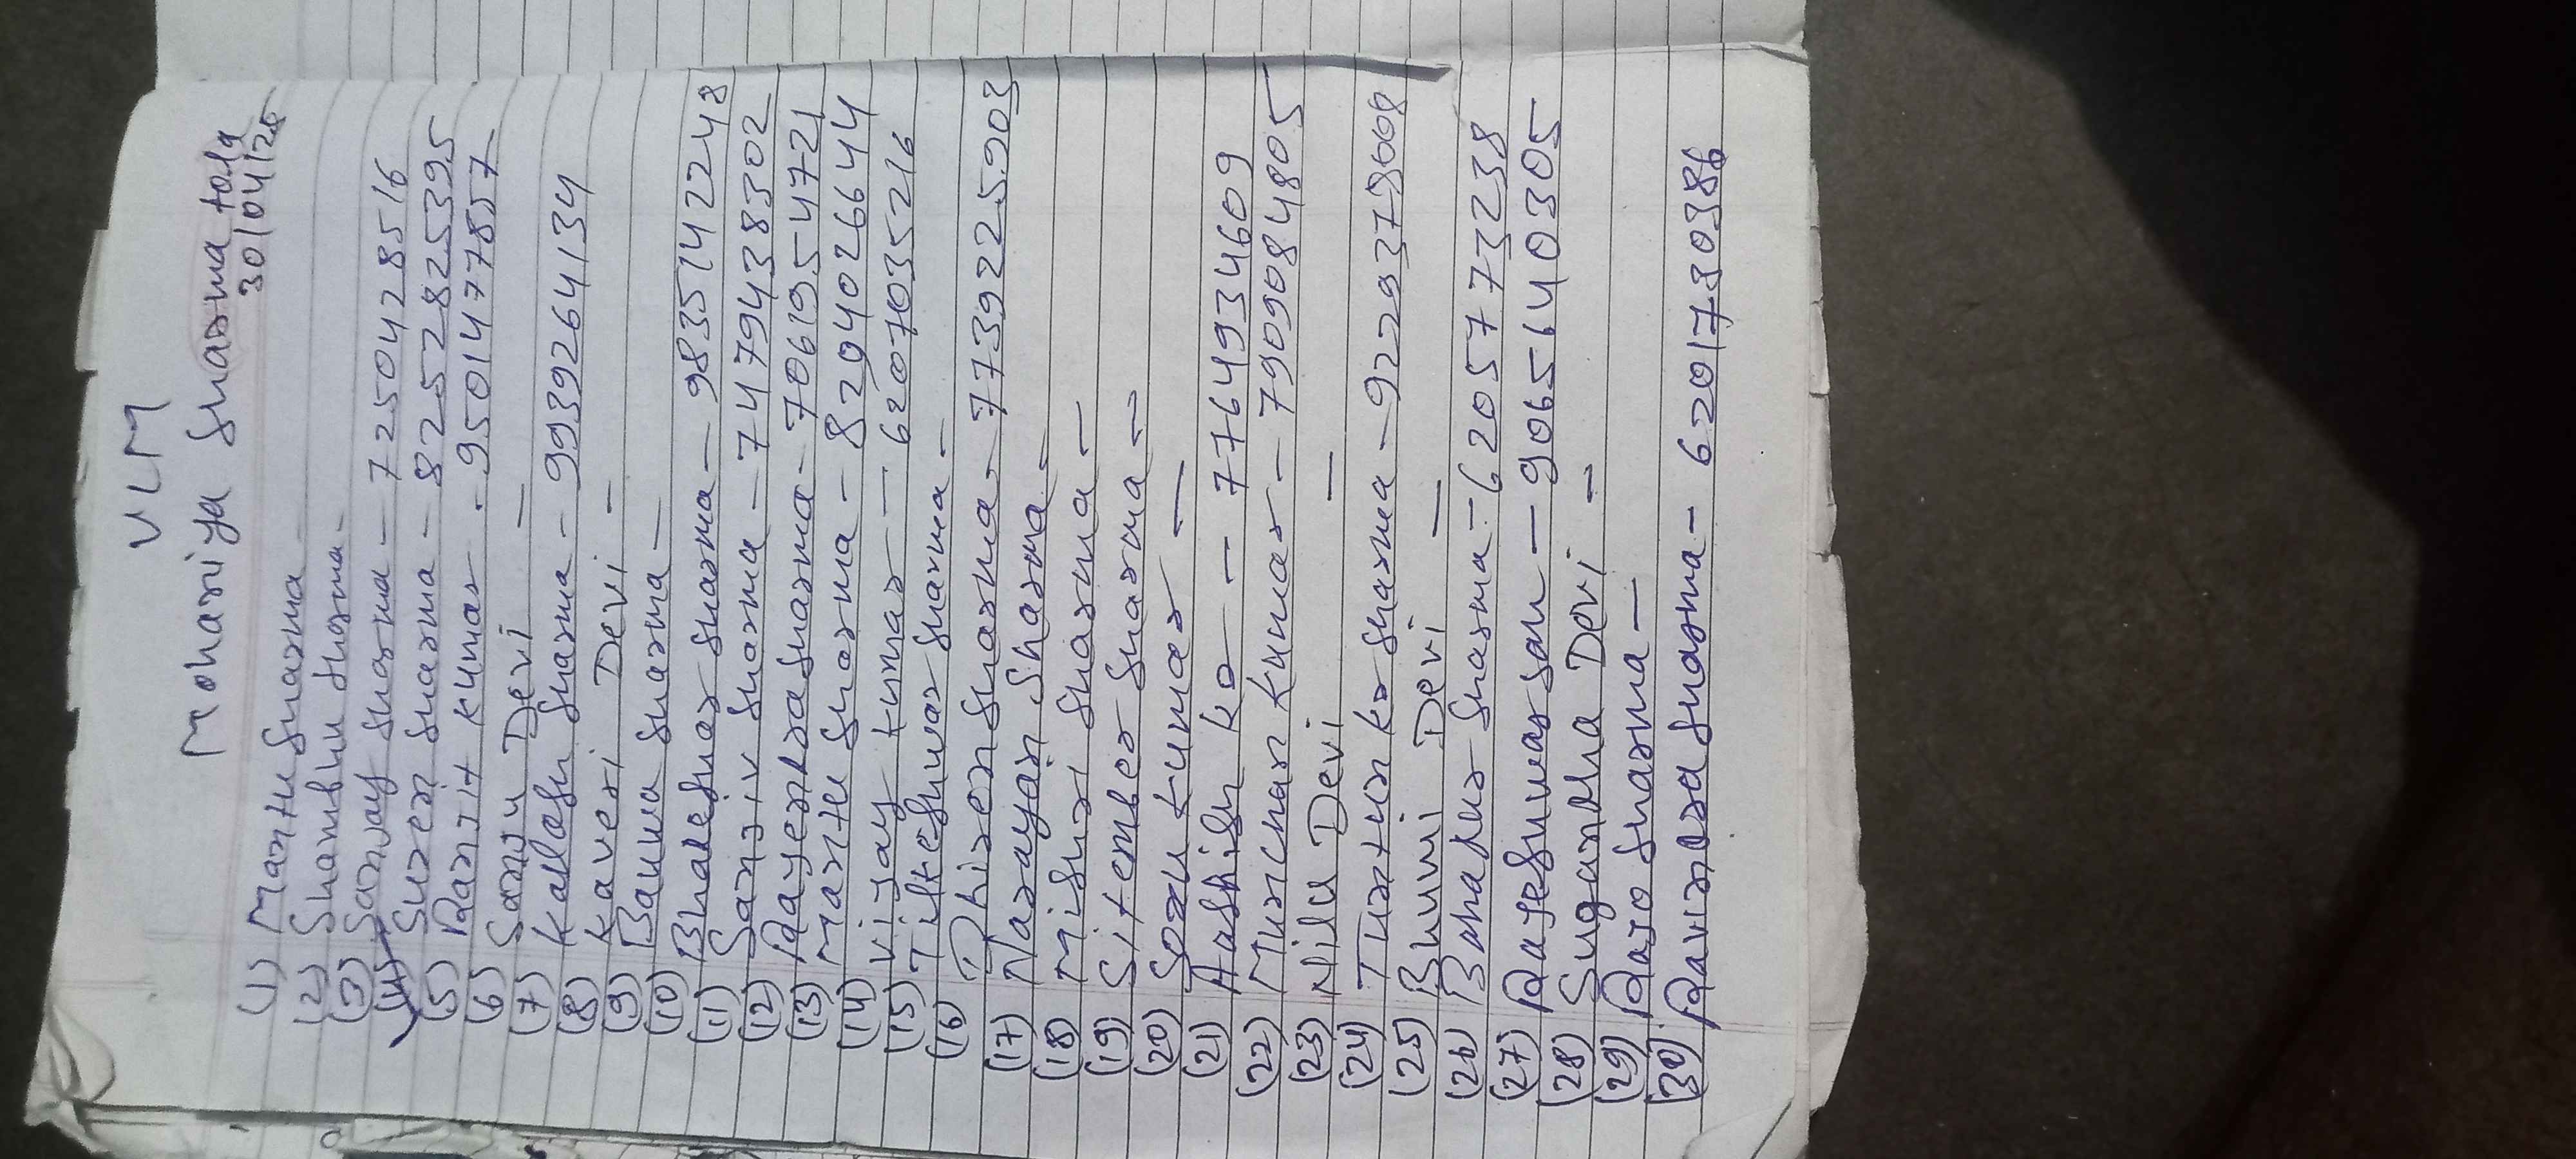 VLM
Mohaniya Sharma tola
30/04/25
(1) Mantu Sharma
(2) Shambhu Sharma -
(3) Sanjay Sharma - 7250428516
(4) Suren Sharma - 8252825395
(5) Ranjit Kumar - 9501477857
(6) Sanju Devi -
(7) Kailash Sharma - 9939264134
(8) Kaveri Devi -
(9) Bauwa Sharma -
(10) Bhaleshwar Sharma - 9835142248
(11) Sanjiv Sharma - 7479438302
(12) Rajendra Sharma - 7061954721
(13) Mantu Sharma - 8294026644
(14) Vijay Kumar - 6207035216
(15) Tilkeshwar Sharma -
(16) Dhiren Sharma - 7739225903
(17) Narayan Sharma -
(18) Mishri Sharma -
(19) Sitember Sharma -
(20) Sonu Kumar -
(21) Aashish Kr - 7764934609
(22) Munchan Kumar - 7909084805
(23) Nilu Devi -
(24) Tuntun Kr Sharma -
(25) Bhuwi Devi -
(26) Bahadur Sharma - 6205773238
(27) Rajeshwar Sah - 9065140305
(28) Sugandha Devi -
(29) Rajo Sharma -
(30) Ravindra Sharma - 6201780386